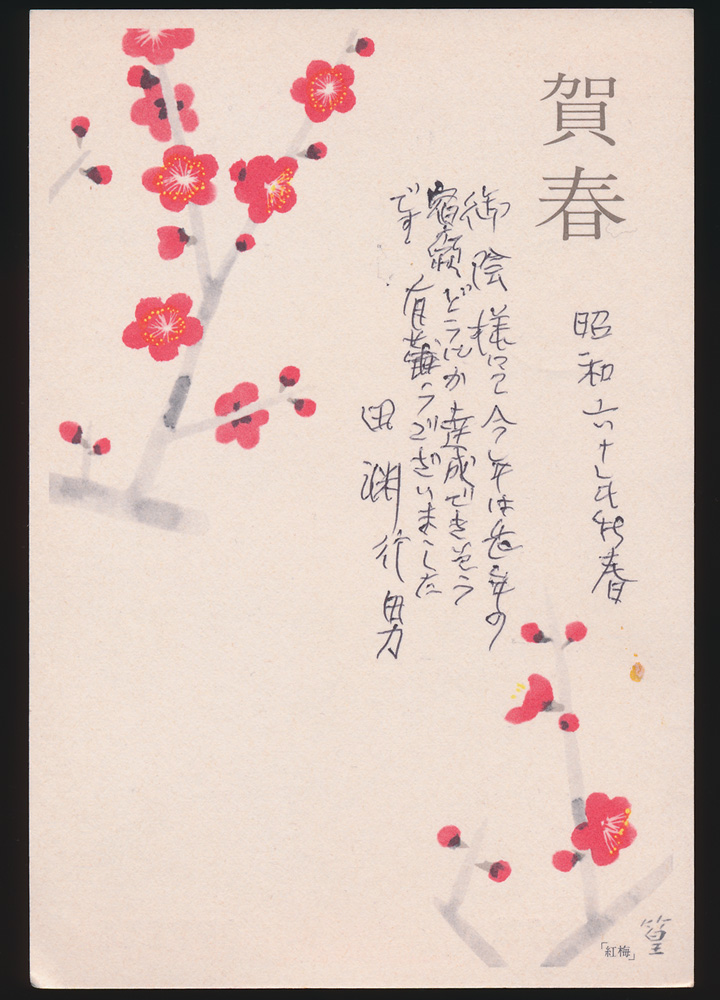 賀春
昭和六十年牛春
御陰様にて今年は長年の
宿願どうにか達成できそう
です 有難うございました
田淵行男
「紅梅」
篁